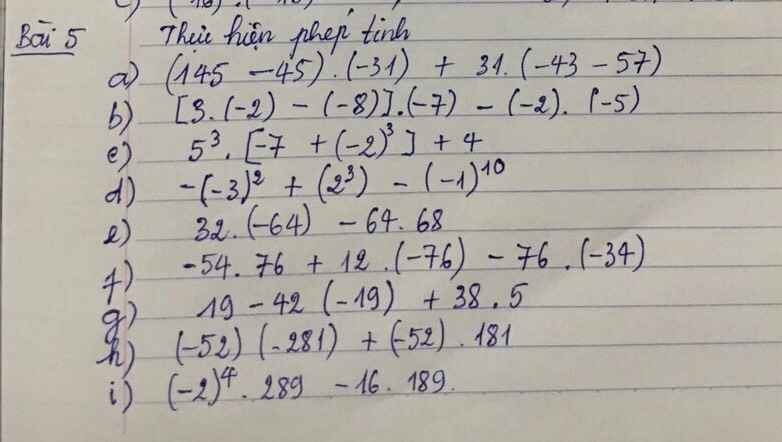 Bài 5 Thực hiện phép tính
a) (145 - 45) . (-31) + 31. (-43 - 57)
b) [3. (-2) - (-8)].(-7) - (-2). (-5)
c) 5³ . [-7 + (-2)³ ] + 4
d) -(-3)² + (2³) - (-1)¹⁰
e) 32. (-64) - 64. 68
f) -54. 76 + 12 . (-76) - 76 . (-34)
g) 19 - 42 (-19) + 38 . 5
h) (-52) (-281) + (-52) . 181
i) (-2)⁴ . 289 - 16 . 189.